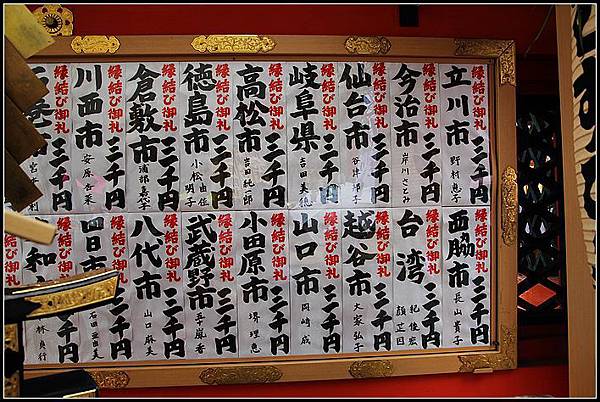 縁結び御礼
立川市
三千円
野村恵子
縁結び御礼
今治市
三千円
岸川さとみ
縁結び御礼
仙台市
三千円
縁結び御礼
岐阜県
三千円
縁結び御礼
高松市
三千円
吉田純一郎
縁結び御礼
徳島市
三千円
小松由佳
明子
縁結び御礼
倉敷市
三千円
縁結び御礼
川西市
三千円
安原杏菜
縁結び御礼
三千円
縁結び御礼
西脇市
三千円
長山貴子
縁結び御礼
台湾
三千円
紀俊宏
顏芷因
縁結び御礼
越谷市
三千円
大家弘子
縁結び御礼
山口市
三千円
岡崎成
縁結び御礼
小田原市
三千円
堺理恵
縁結び御礼
武蔵野市
三千円
五十嵐香
縁結び御礼
八代市
三千円
山口麻美
縁結び御礼
四日市市
三千円
縁結び御礼
和
千円
林貞行
縁結び御礼